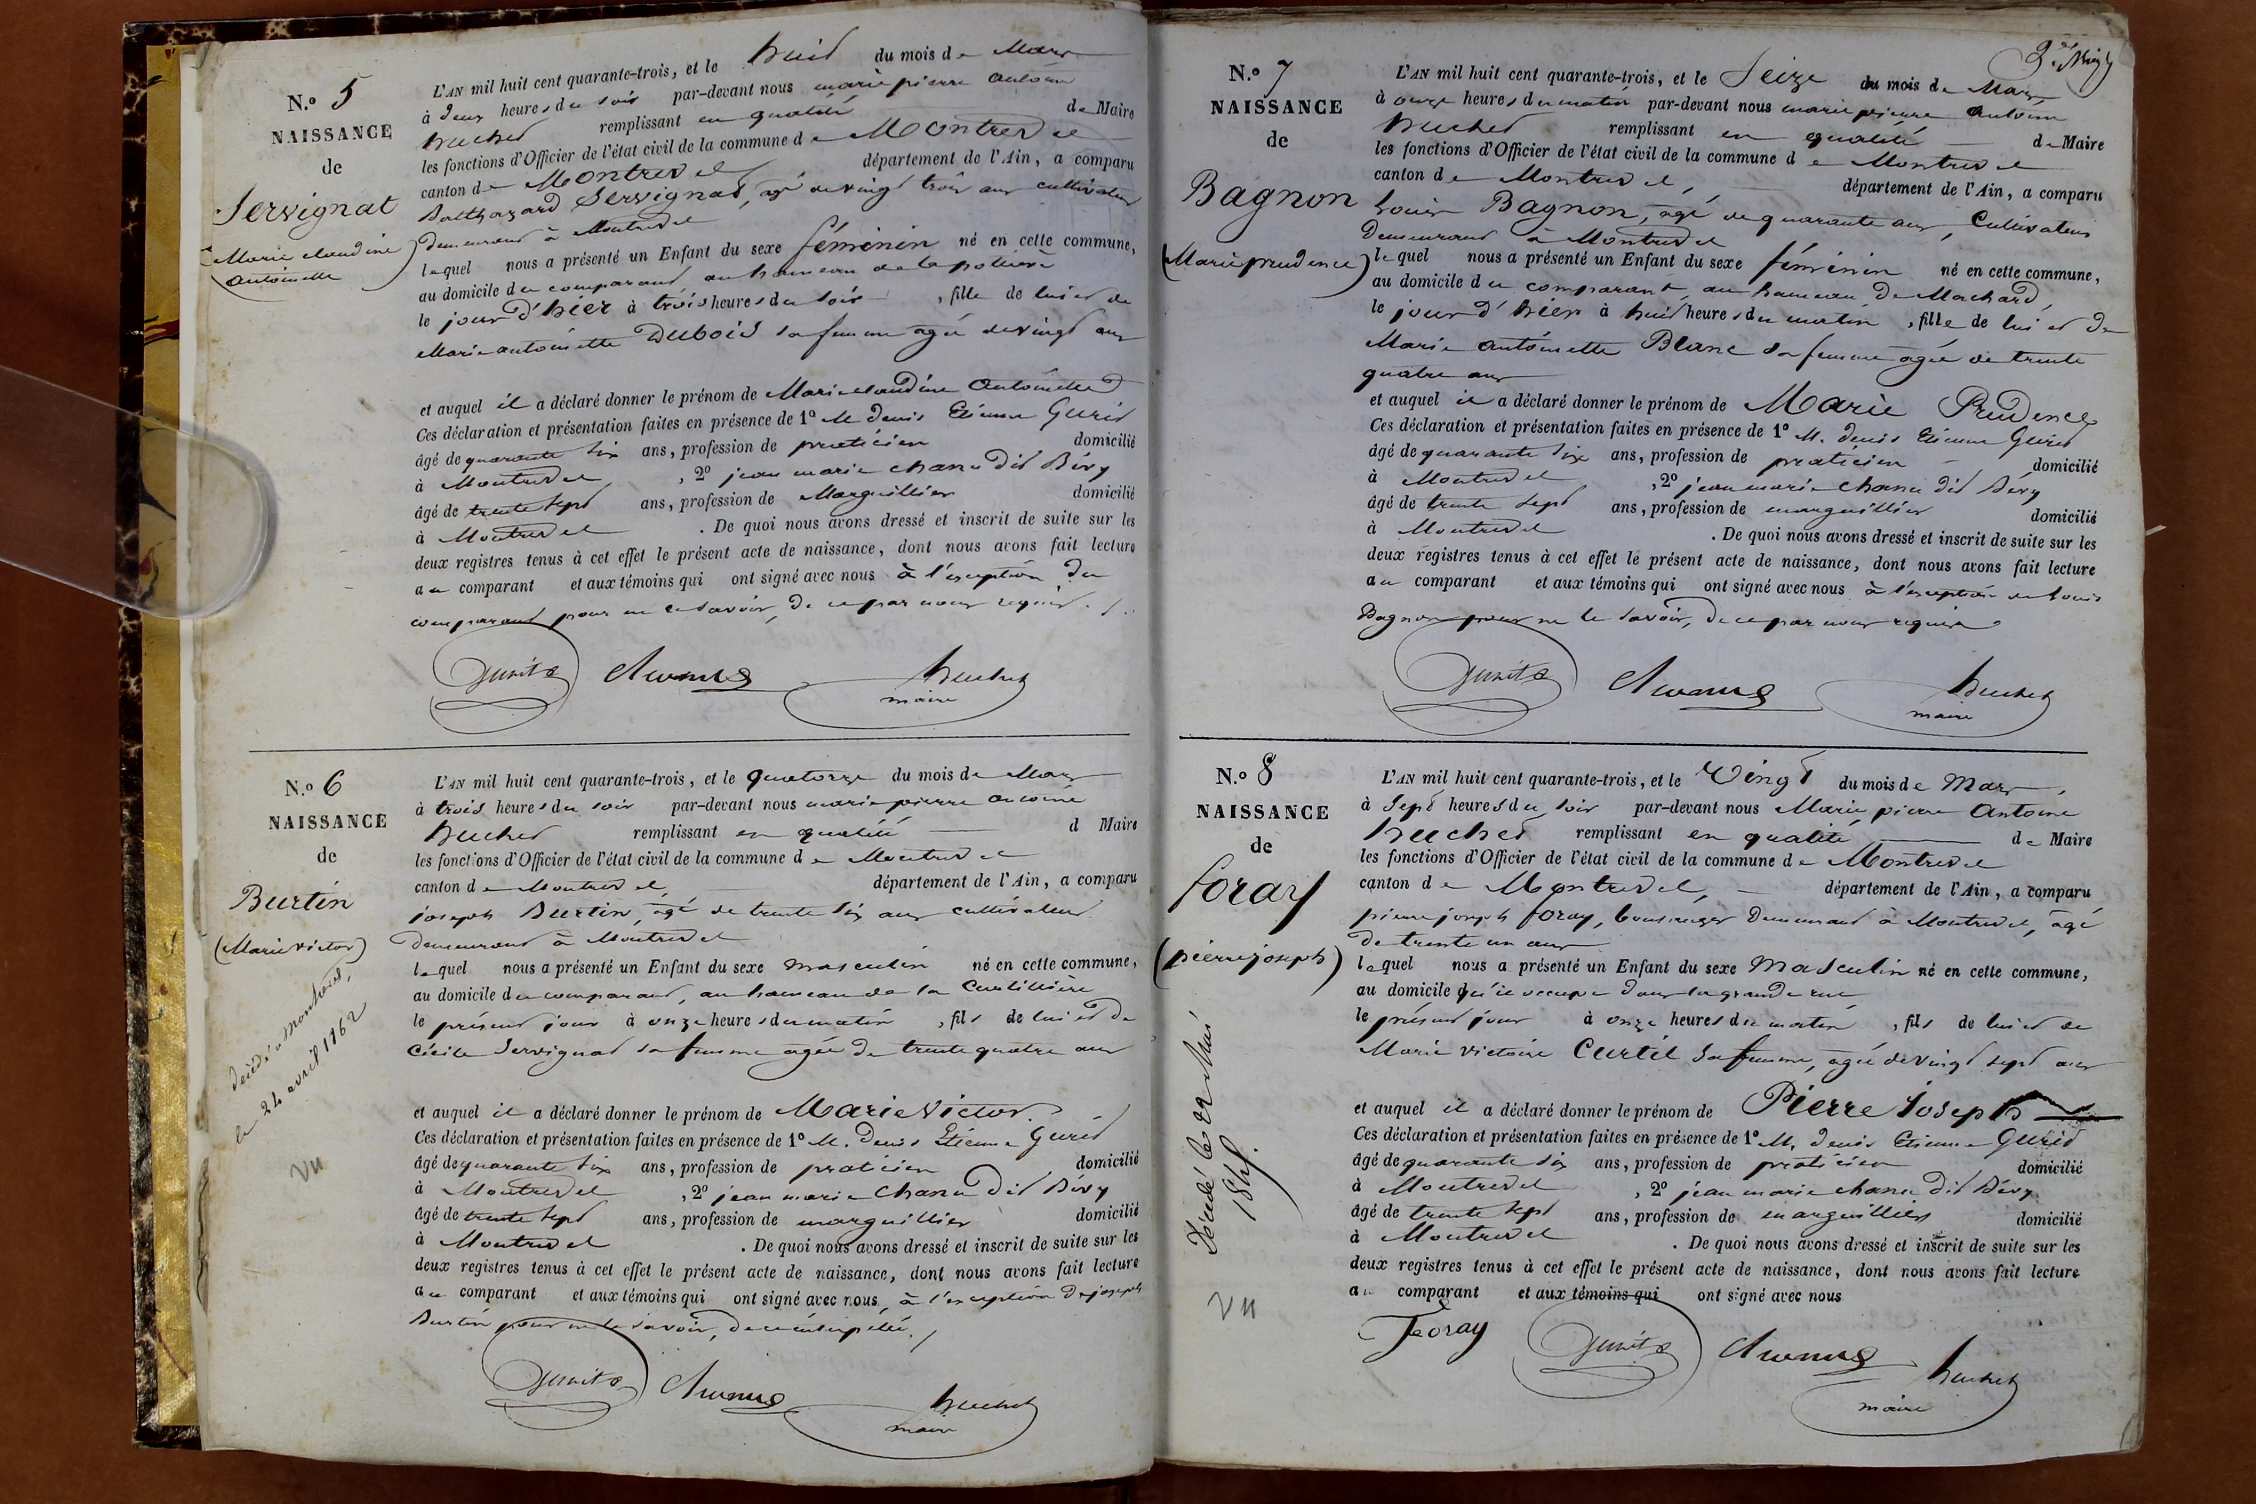 N.º 5
NAISSANCE
de
Servignat
(Marie claudine
antoinette)
L'AN mil huit cent quarante-trois, et le huit du mois de Mars
à deux heures du soir par-devant nous marie pierre antoine
huchet remplissant en qualité de Maire
les fonctions d'Officier de l'état civil de la commune de Montrevel
canton de Montrevel département de l'Ain, a comparu
Balthazard Servignat, agé de vingt trois ans cultivateur
demeurant à Montrevel
lequel nous a présenté un Enfant du sexe féminin né en cette commune,
au domicile du comparant au hameau de la
le jour d'hier à trois heures du soir, fille de lui et de
Marie antoinette Dubois sa femme agée de vingt ans
et auquel il a déclaré donner le prénom de Marie claudine Antoinette
Ces déclaration et présentation faites en présence de 1º M denis Etienne Gurit
âgé de quarante six ans, profession de praticien domicilié
à Montrevel, 2º jean marie chanu dit Bévy
âgé de trente sept ans, profession de Marguillier domicilié
à Montrevel. De quoi nous avons dressé et inscrit de suite sur les
deux registres tenus à cet effet le présent acte de naissance, dont nous avons fait lecture
au comparant et aux témoins qui ont signé avec nous à l'exception du
comparant pour ne le savoir, de ce par nous requis
Gurit Chanu huchet
maire
N.º 6
NAISSANCE
de
Burtin
(Marie victor)
décédé à
le 24 avril 1862
Vu
L'AN mil huit cent quarante-trois, et le quatorze du mois de Mars
à trois heures du soir par-devant nous marie pierre antoine
huchet remplissant en qualité d Maire
les fonctions d'Officier de l'état civil de la commune de Montrevel
canton de Montrevel, département de l'Ain, a comparu
joseph Burtin, agé de trente six ans cultivateur
demeurant à Montrevel
lequel nous a présenté un Enfant du sexe masculin né en cette commune,
au domicile du comparant, au hameau de la Curtillière
le présent jour à onze heures du matin, fils de lui et de
Cécile Servignat sa femme agée de trente quatre ans
et auquel il a déclaré donner le prénom de Marie Victor.
Ces déclaration et présentation faites en présence de 1º M. denis Etienne Gurit
âgé de quarante six ans, profession de praticien domicilié
à Montrevel, 2º jean marie chanu dit Bévy
âgé de trente sept ans, profession de marguillier domicilié
à Montrevel. De quoi nous avons dressé et inscrit de suite sur les
deux registres tenus à cet effet le présent acte de naissance, dont nous avons fait lecture
au comparant et aux témoins qui ont signé avec nous, à l'exception de joseph
Burtin pour ne le savoir, de ce interpellé.
Gurit Chanu huchet
maire
N.º 7
NAISSANCE
de
Bagnon
(Marie prudence)
L'AN mil huit cent quarante-trois, et le Seize du mois de Mars
à onze heures du matin par-devant nous marie pierre antoine
huchet remplissant en qualité de Maire
les fonctions d'Officier de l'état civil de la commune de Montrevel
canton de Montrevel, département de l'Ain, a comparu
Louis Bagnon, agé de quarante ans, Cultivateur
demeurant à Montrevel
lequel nous a présenté un Enfant du sexe féminin né en cette commune,
au domicile du comparant, au hameau de Machard,
le jour d'hier à huit heures du matin, fille de lui et de
Marie antoinette Blanc sa femme agée de trente
quatre ans
et auquel il a déclaré donner le prénom de Marie Prudence
Ces déclaration et présentation faites en présence de 1º M. denis Etienne Gurit
âgé de quarante six ans, profession de praticien domicilié
à Montrevel, 2º jean marie chanu dit Bévy
âgé de trente sept ans, profession de marguillier domicilié
à Montrevel. De quoi nous avons dressé et inscrit de suite sur les
deux registres tenus à cet effet le présent acte de naissance, dont nous avons fait lecture
au comparant et aux témoins qui ont signé avec nous à l'exception de Louis
Bagnon pour ne le savoir, de ce par nous requis
Gurit Chanu huchet
maire
N.º 8
NAISSANCE
de
foray
(pierre joseph)
Décédé le 22 Mai
Vu
L'AN mil huit cent quarante-trois, et le Vingt du mois de Mars,
à Sept heures du soir par-devant nous Marie pierre Antoine
huchet remplissant en qualité de Maire
les fonctions d'Officier de l'état civil de la commune de Montrevel
canton de Montrevel, département de l'Ain, a comparu
pierre joseph foray, demeurant à Montrevel, agé
de trente un ans
lequel nous a présenté un Enfant du sexe Masculin né en cette commune,
au domicile qu'il occupe dans la grande rue
le présent jour à onze heures du matin, fils de lui et de
Marie victoire Curtil sa femme, agée de vingt sept ans
et auquel il a déclaré donner le prénom de Pierre Joseph
Ces déclaration et présentation faites en présence de 1º M. denis Etienne Gurit
âgé de quarante six ans, profession de praticien domicilié
à Montrevel, 2º jean marie chanu dit Bévy
âgé de trente sept ans, profession de marguillier domicilié
à Montrevel. De quoi nous avons dressé et inscrit de suite sur les
deux registres tenus à cet effet le présent acte de naissance, dont nous avons fait lecture
au comparant et aux témoins qui ont signé avec nous
Foray Gurit Chanu huchet
maire